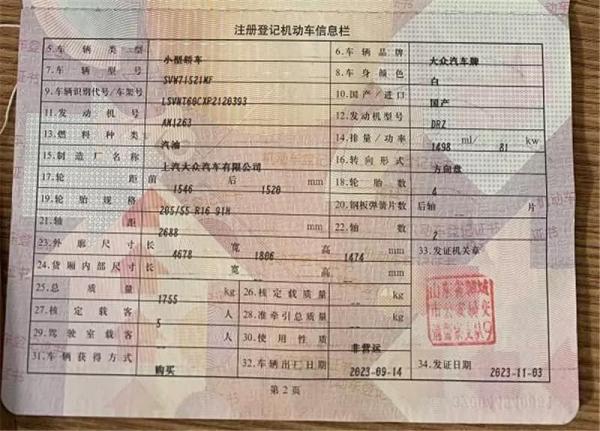 注册登记机动车信息栏
5.车辆类型 小型轿车 6.车辆品牌 大众汽车牌
7.车辆型号 SVW71521MF 8.车身颜色 白
9.车辆识别代号/车架号 LSVNT60CXP2120393 10.国产/进口 国产
11.发动机号 AM1263 12.发动机型号 DRZ
13.燃料种类 汽油 14.排量/功率 1498 ml/ 81 kw
15.制造厂名称 上汽大众汽车有限公司 16.转向形式 方向盘
17.轮距 前 1546 后 1520 mm 18.轮胎数 4
19.轮胎规格 205/55 R16 91H 20.钢板弹簧片数 后轴 -- 片
21.轴距 2688 mm 22.轴数 2
23.外廓尺寸 长 4678 宽 1806 高 1474 mm 33.发证机关章
24.货厢内部尺寸 长 -- 宽 -- 高 -- mm
25.总质量 1755 kg 26.核定载质量 -- kg
27.核定载客 5 人 28.准牵引总质量 -- kg
29.驾驶室载客 -- 人 30.使用性质 非营运
31.车辆获得方式 购买 32.车辆出厂日期 2023-09-14 34.发证日期 2023-11-03
第2页